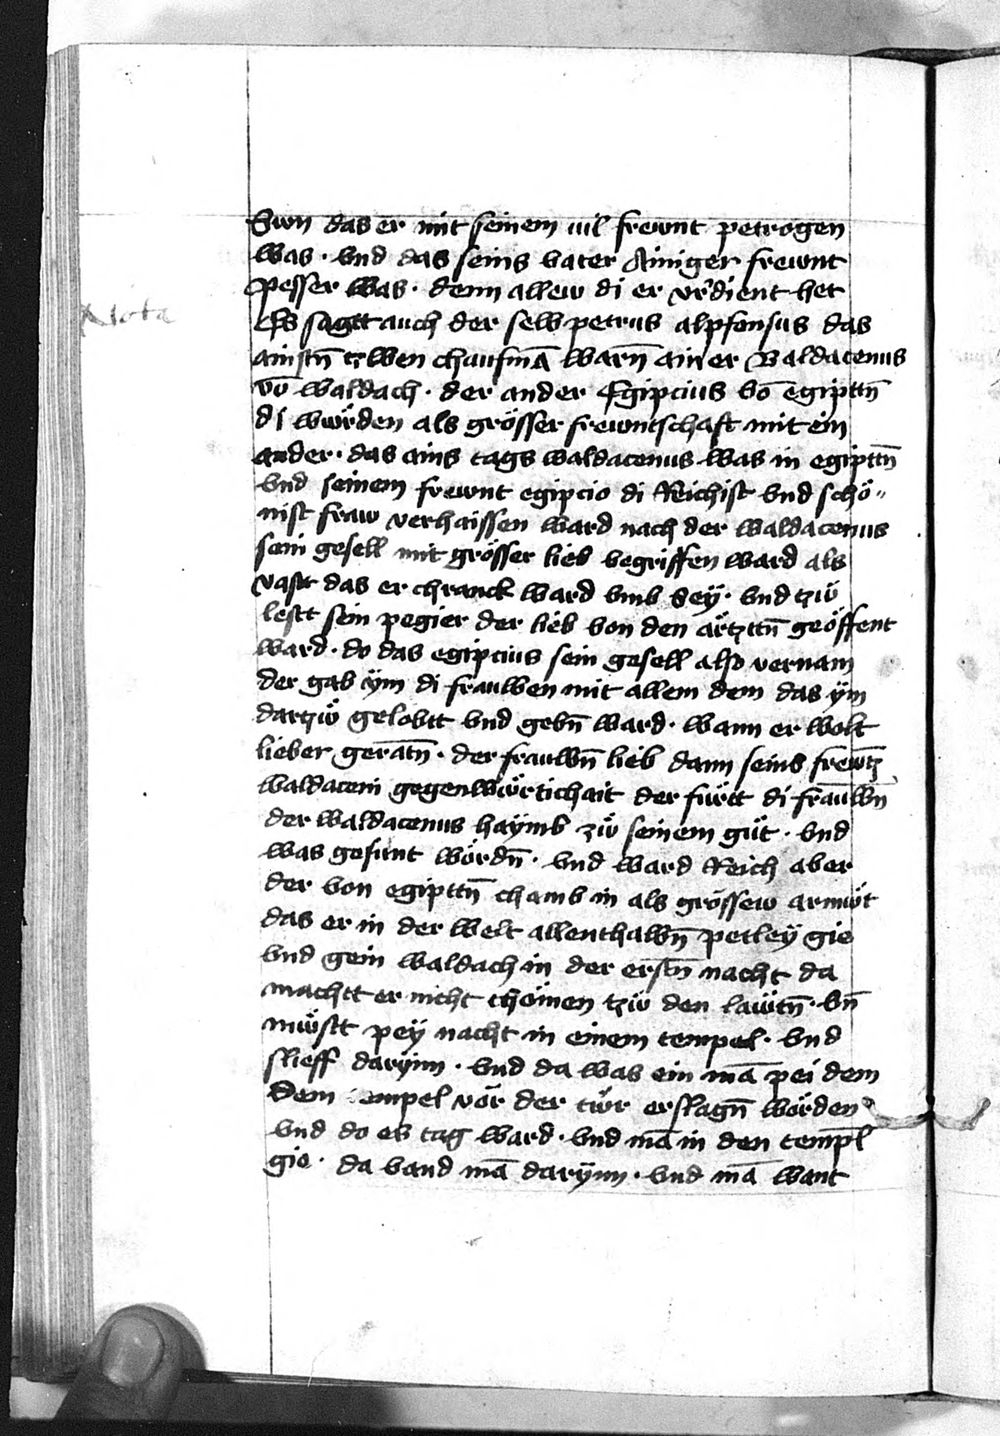 Swn das er mit seinem uil frewnt petrogen
was · vnd das seins vater Ainiger frewnt
pesser was · denn allew di er vrdient het
Nota
Es sagtt auch der selb petrus alpfonsus das
ainstn̄ tzwen chaufmā warn̄ ainer Baldacenus
vō waldach · der ander Egipcius vō egipttn̄
di wurden als grösser frewntschaft mit ein
ander · das ains tags waldacenus was in egipttn̄
vnd seinem frewnt egipcio di Reichist vnd schö„
nist fraw verhaissen ward nach der waldacenus
sein gesell mit grösser lieb begriffen ward als
vastt das er chranck ward vmb Sey · vnd tzw̋
lestt sein pegier der lieb von den ärtzttn̄ geöffent
ward · do das egipcius sein gesell also vernam
der gab ÿm di frauwen mit allem dem das ÿm
dartzw̋ gelobtt vnd gebn̄ ward · wann er wolt
lieber geratn̄ · der frauwn̄ lieb dann seins frewtz
waldaceni gegenwürtichait der fürtt di frauwn̄
der waldacenus haÿmb zw̋ seinem gůt · vnd
was gesunt wördn̄ · vnd ward Reich aber
der von egipttn̄ chamb in als grössew armůt
das er in der welt allenthalbn̄ petleÿ gie
vnd gein waldach in der erstn̄ nacht da
machtt er nicht chömen tzw̋ den läwtn̄ · vn̄
mw̋stt peÿ nacht in einem tempel · vnd
slieff darÿnn · vnd da was ein mā pei dem
dem tempel vör der twr erslagn̄ wörden
vnd do es tag ward · vnd mā in den templ̄
gie · da vand mā darÿnn · vnd mā want